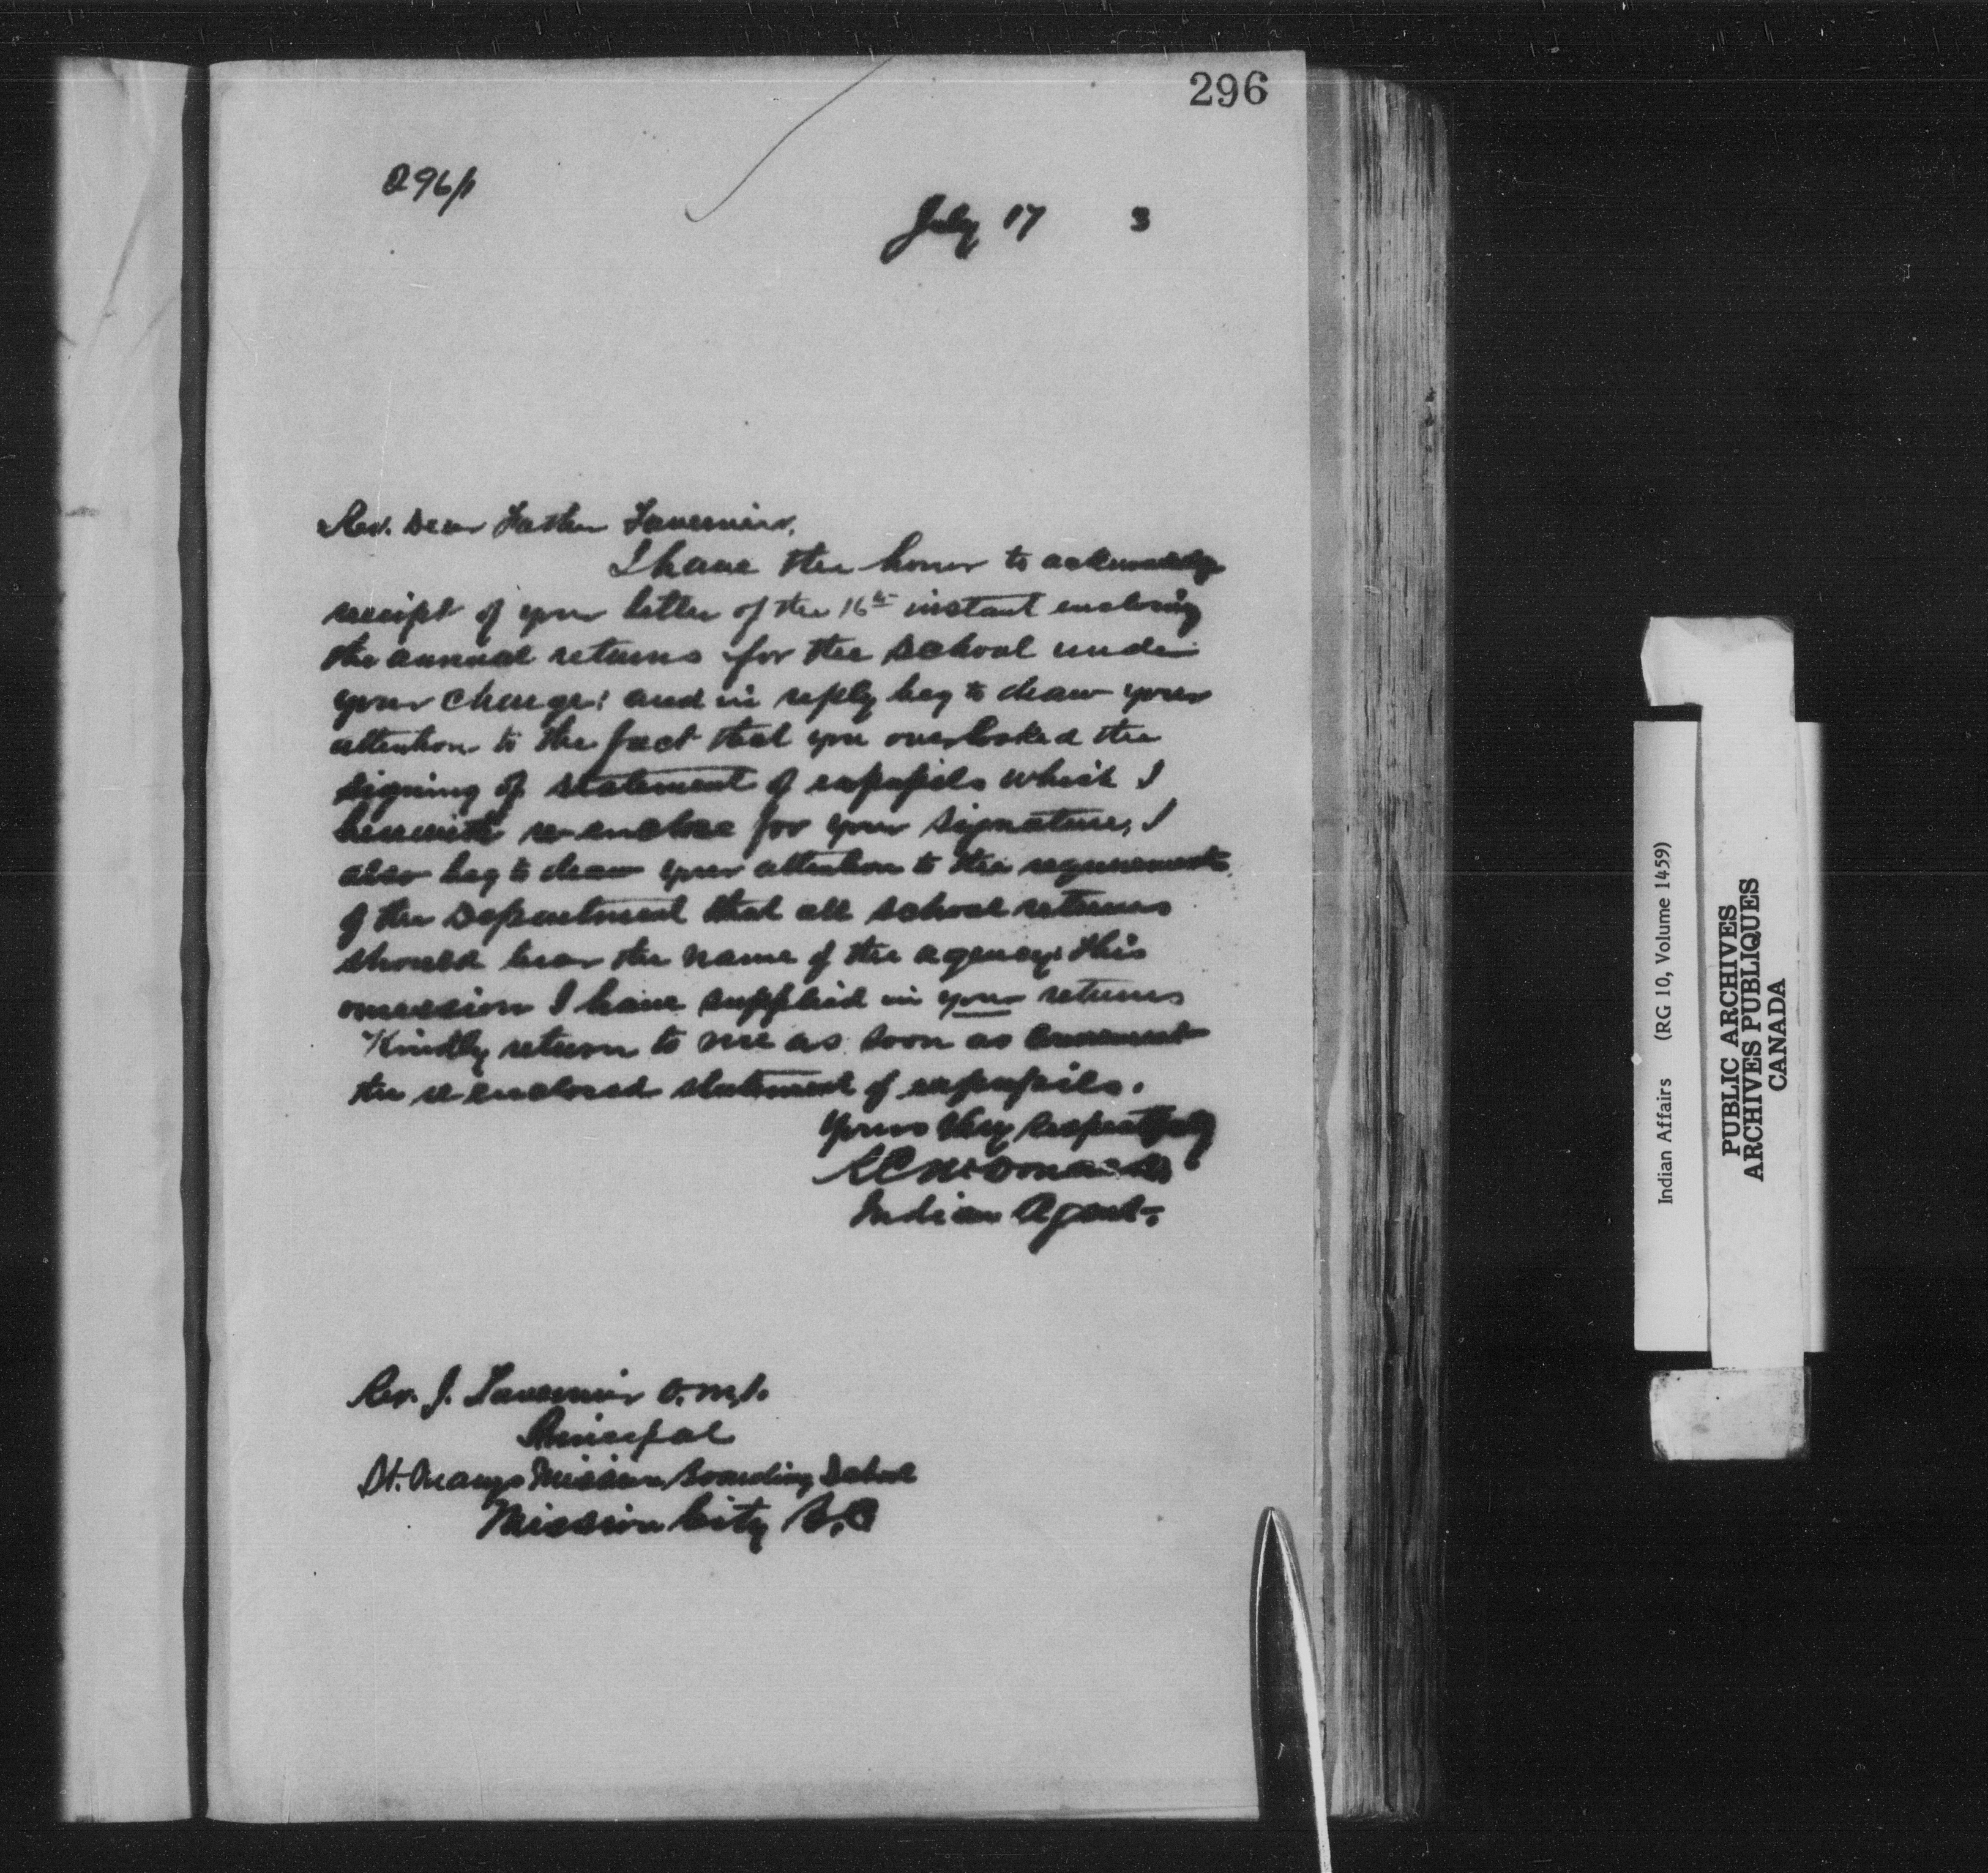 296
296/1
July 17 3
Rev. Dear Father Tavernier,
I have the honor to acknowledge
receipt of your letter of the 16th instant enclosing
the annual returns for the school under
your charge: and in reply beg to draw your
attention to the fact that you overlooked the
signing of statement of expupils which I
herewith re-enclose for your signature, I
also beg to draw your attention to the requirements
of the Department that all school returns
should bear the name of the agency: this
omession I have supplied in your returns
Kindly return to me as soon as convenient
the re enclosed statement of expupils.
Yours Very Respectfully
R C McDonald
Indian Agent.
Rev. J. Tavernier O.M.I.
Principal
St. Marys Mission Boarding School
Mission City B.C
Indian Affairs (RG 10, Volume 1459)
PUBLIC ARCHIVES
ARCHIVES PUBLIQUES
CANADA